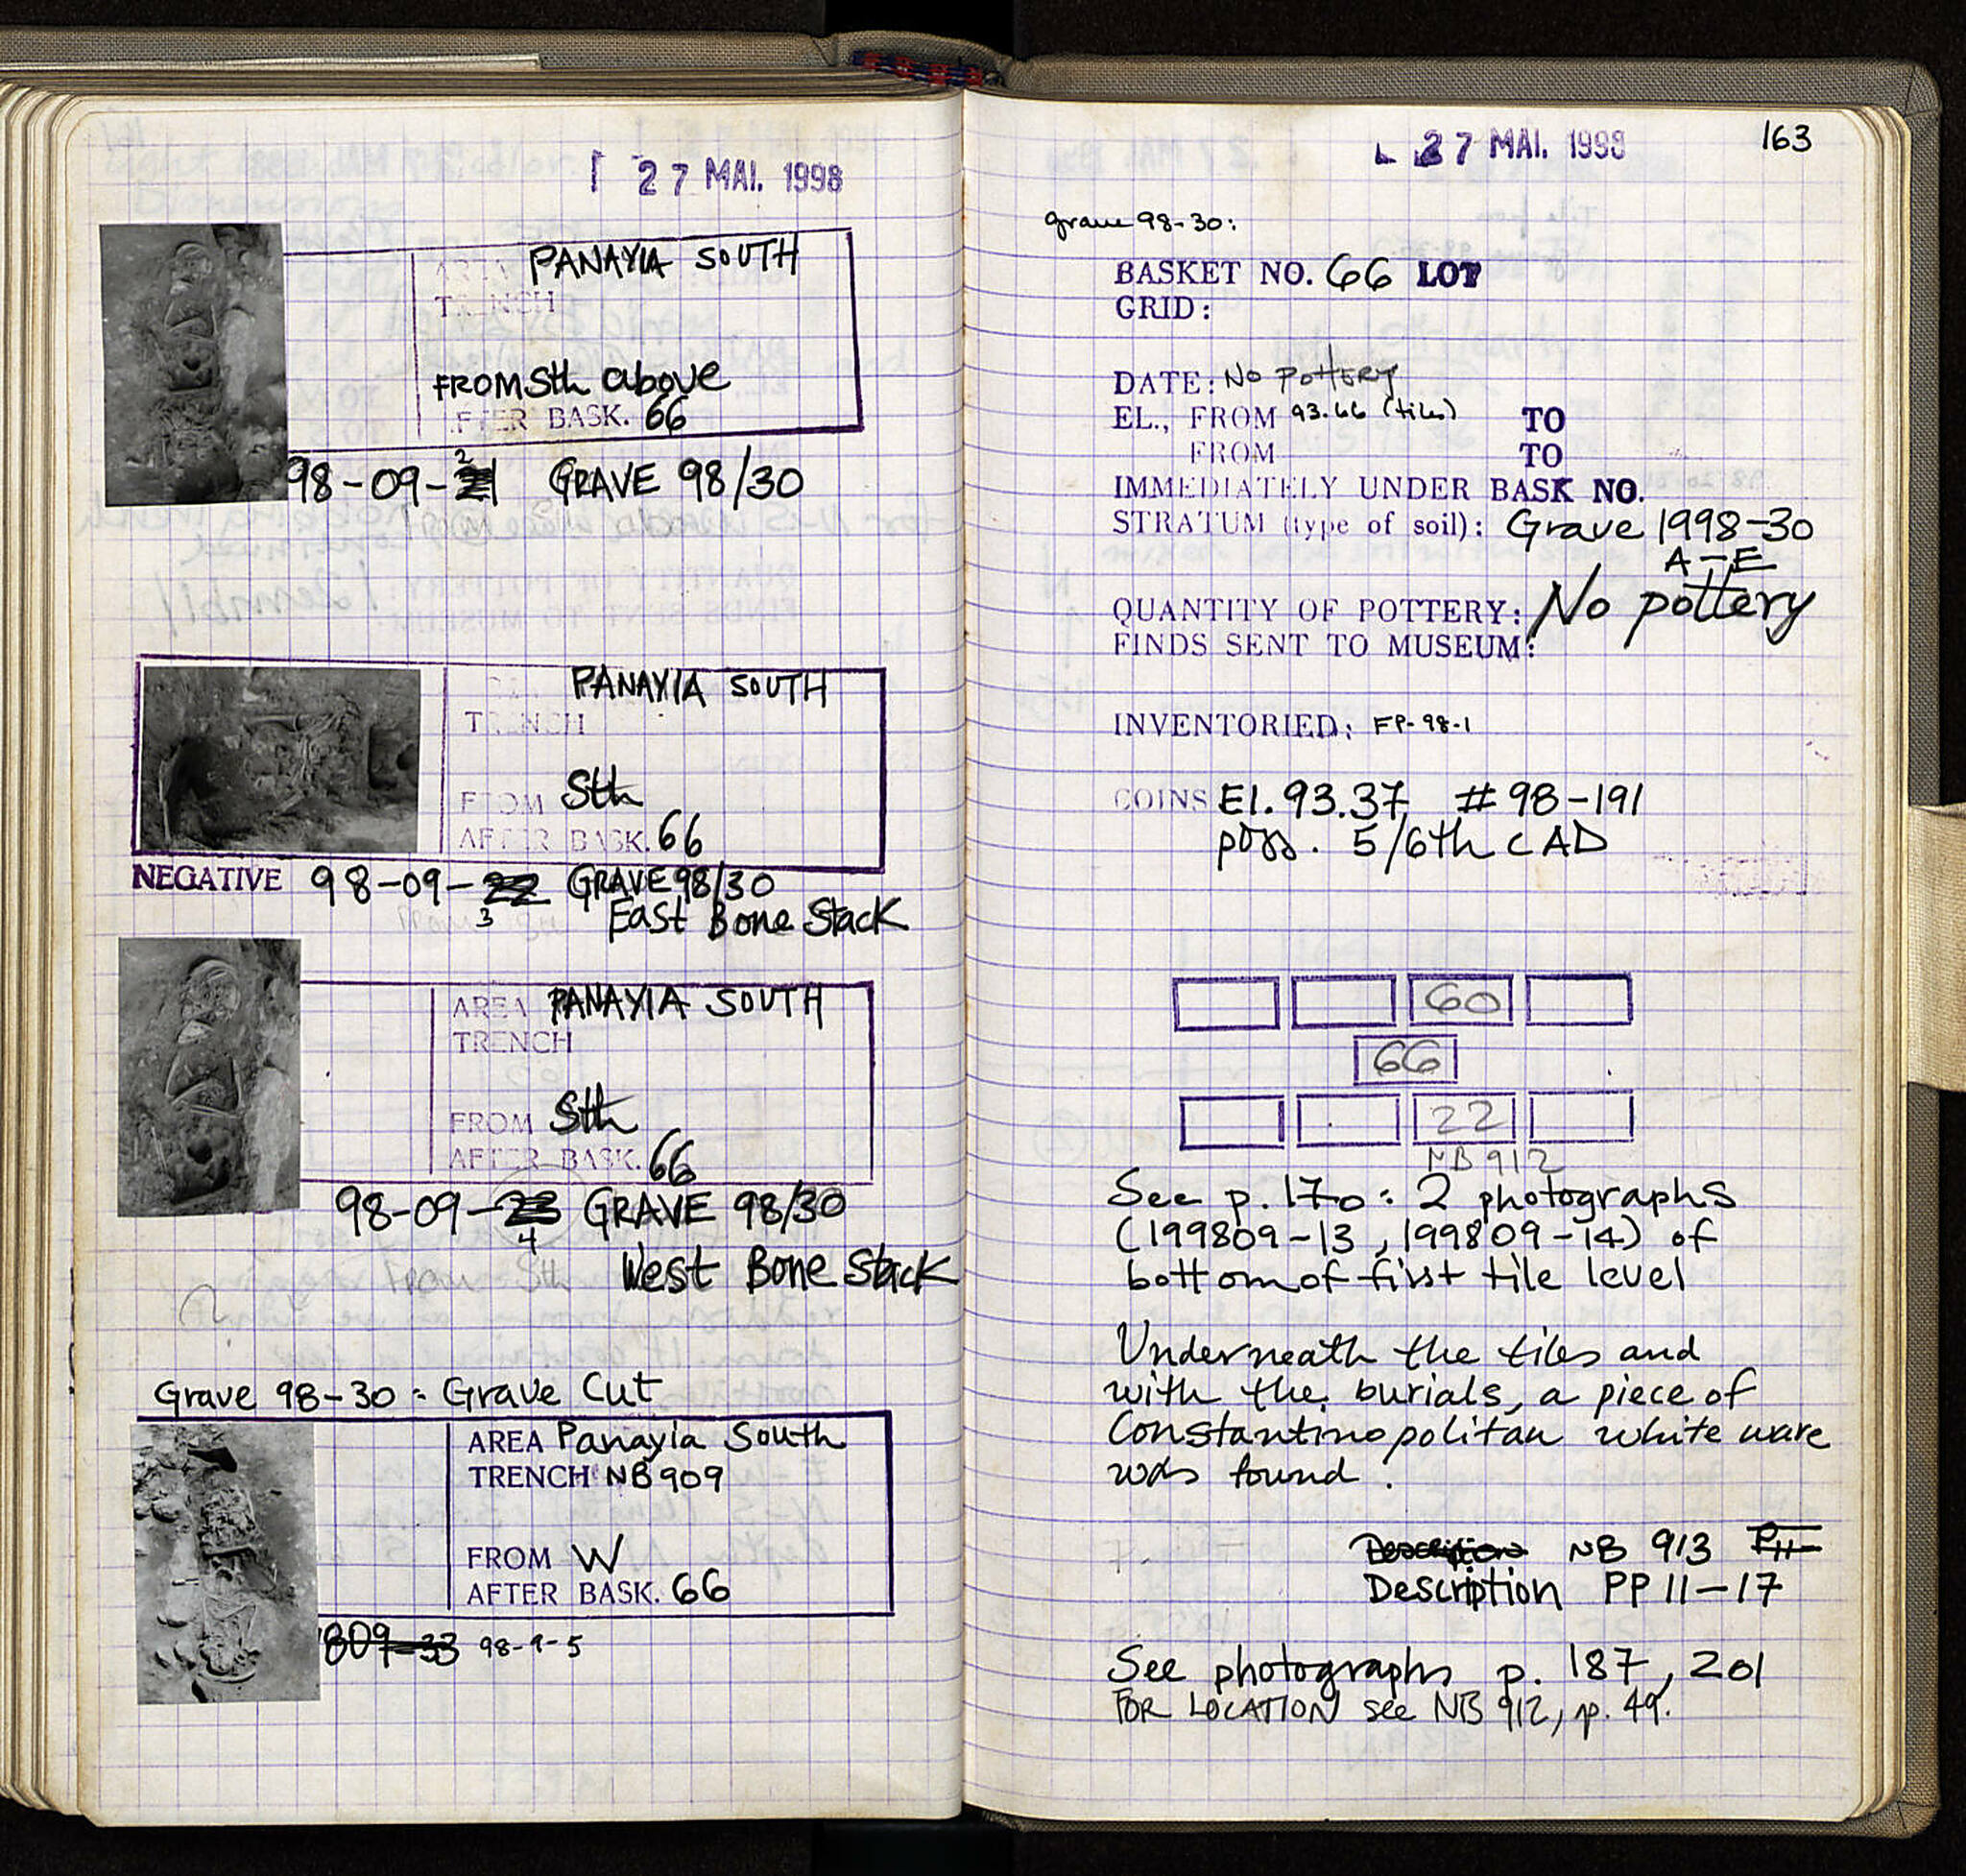 27 MAI. 1998
AREA PANAYIA SOUTH
TRENCH
FROM Sth above
AFTER BASK. 66
98-09-2 GRAVE 98/30
PANAYIA SOUTH
TRENCH
FROM Sth
AFTER BASK. 66
NEGATIVE 98-09-22 GRAVE 98/30
3 East Bone Stack
AREA PANAYIA SOUTH
TRENCH
FROM Sth
AFTER BASK. 66
98-09-23 GRAVE 98/30
4
West Bone Stack
Grave 98-30 : Grave Cut
AREA Panayia South
TRENCH NB 909
FROM W
AFTER BASK. 66
809-33 98-9-5
27 MAI. 1998 163
grave 98-30:
BASKET NO. 66 LOT
GRID:
DATE: No POTTERY
EL., FROM 93.66 (tiles) TO
FROM TO
IMMEDIATELY UNDER BASK NO.
STRATUM (type of soil): Grave 1998-30
A-E
QUANTITY OF POTTERY: No pottery
FINDS SENT TO MUSEUM:
INVENTORIED: FP-98-1
COINS El. 93.37 #98-191
poss. 5/6th c AD
60
66
22
NB 912
See p. 170: 2 photographs
(199809-13, 199809-14) of
bottom of first tile level
Underneath the tiles and
with the burials, a piece of
Constantinopolitan white ware
was found.
Description NB 913 P11
Description PP 11-17
See photographs p. 187, 201
FOR LOCATION see NB 912, p. 49.